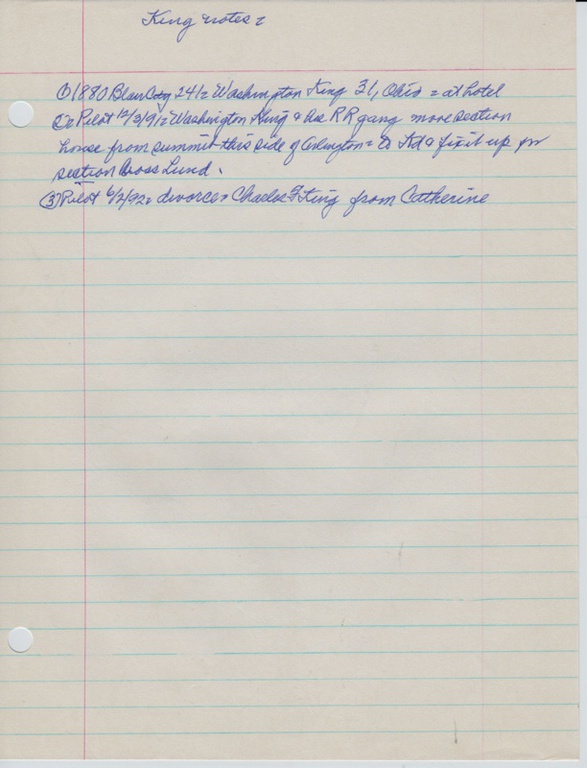 King notes:
① 1880 Blair City 241 = Washington King 31, Ohio = at hotel
② Pilot 12/3/91 = Washington King & his RR gang move section
house from summit this side of Arlington = to & fix it up for
section boss Lund.
③ Pilot 6/2/92 = divorce = Charles F King from Catherine